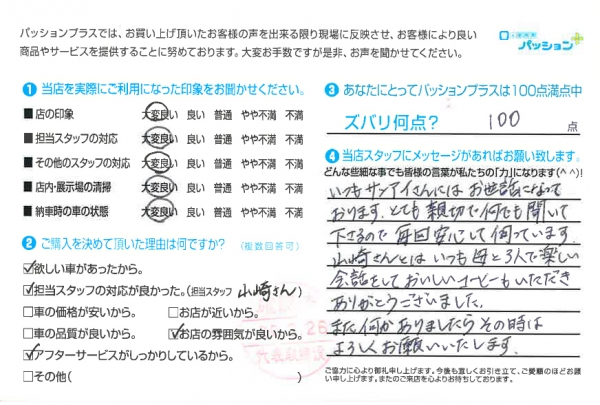 パッションプラスでは、お買い上げ頂いたお客様の声を出来る限り現場に反映させ、お客様により良い
商品やサービスを提供することに努めております。大変お手数ですが是非、お声を聞かせてください。
パッション
❶ 当店を実際にご利用になった印象をお聞かせください。
■ 店の印象 大変良い 良い 普通 やや不満 不満
■ 担当スタッフの対応 大変良い 良い 普通 やや不満 不満
■ その他のスタッフの対応 大変良い 良い 普通 やや不満 不満
■ 店内・展示場の清掃 大変良い 良い 普通 やや不満 不満
■ 納車時の車の状態 大変良い 良い 普通 やや不満 不満
❷ ご購入を決めて頂いた理由は何ですか? (複数回答可)
☑欲しい車があったから。
☑担当スタッフの対応が良かった。(担当スタッフ 山崎さん)
□車の価格が安いから。 □お店が近いから。
□車の品質が良いから。 ☑お店の雰囲気が良いから。
☑アフターサービスがしっかりしているから。
□その他( )
❸ あなたにとってパッションプラスは100点満点中
ズバリ何点? 100 点
❹ 当店スタッフにメッセージがあればお願い致します。
どんな些細な事でも皆様の言葉が私たちの「力」になります(^^)!
いつもサンアイさんにはお世話になって
おります。とても親切で何でも聞いて
下さるので毎回安心して伺っています。
山崎さんとはいつも母と3人で楽しい
会話をしておいしいコーヒーもいただき
ありがとうございました。
また何かありましたらその時は
よろしくお願いいたします。
ご協力に心より御礼申し上げます。今後も宜しくお引き立て、ご愛顧のほどお願
い申し上げます。またのご来店を心よりお待ちしております。